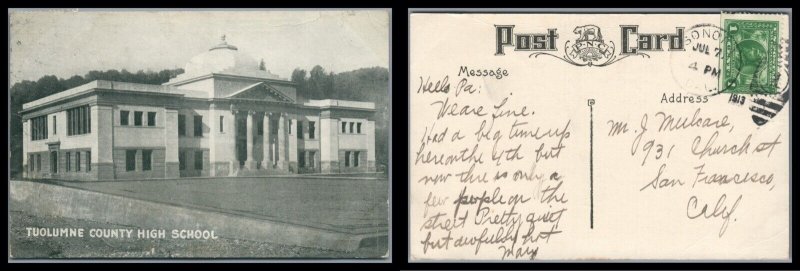 TUOLUMNE COUNTY HIGH SCHOOL
Post Card
Message
Address
SONO
JUL 7
4 PM
1913
Hello Pa:
We are fine.
Had a big time up
here on the 4th but
now there is only a
few people on the
street Pretty quiet
but awfully hot
Mary
Mr. J
931 Church st
San Francisco,
Calif.